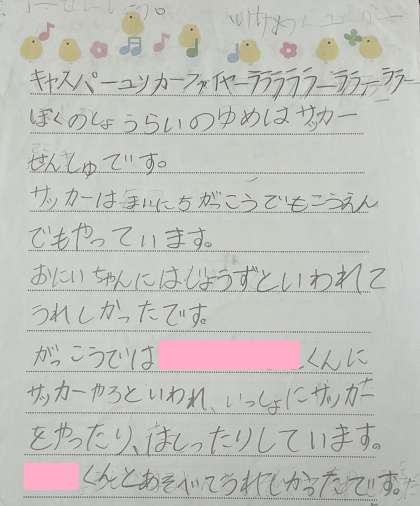 キャスパーユソカーファイヤーラララララーラララーララー
ぼくのしょうらいのゆめはサッカー
せんしゅです。
サッカーはまいにちがっこうでもこうえん
でもやっています。
おにいちゃんにはじょうずといわれて
うれしかったです。
がっこうでは くんに
サッカーやろといわれ、いっしょにサッカー
をやったり、はしったりしています。
くんとあそべてうれしかったです。